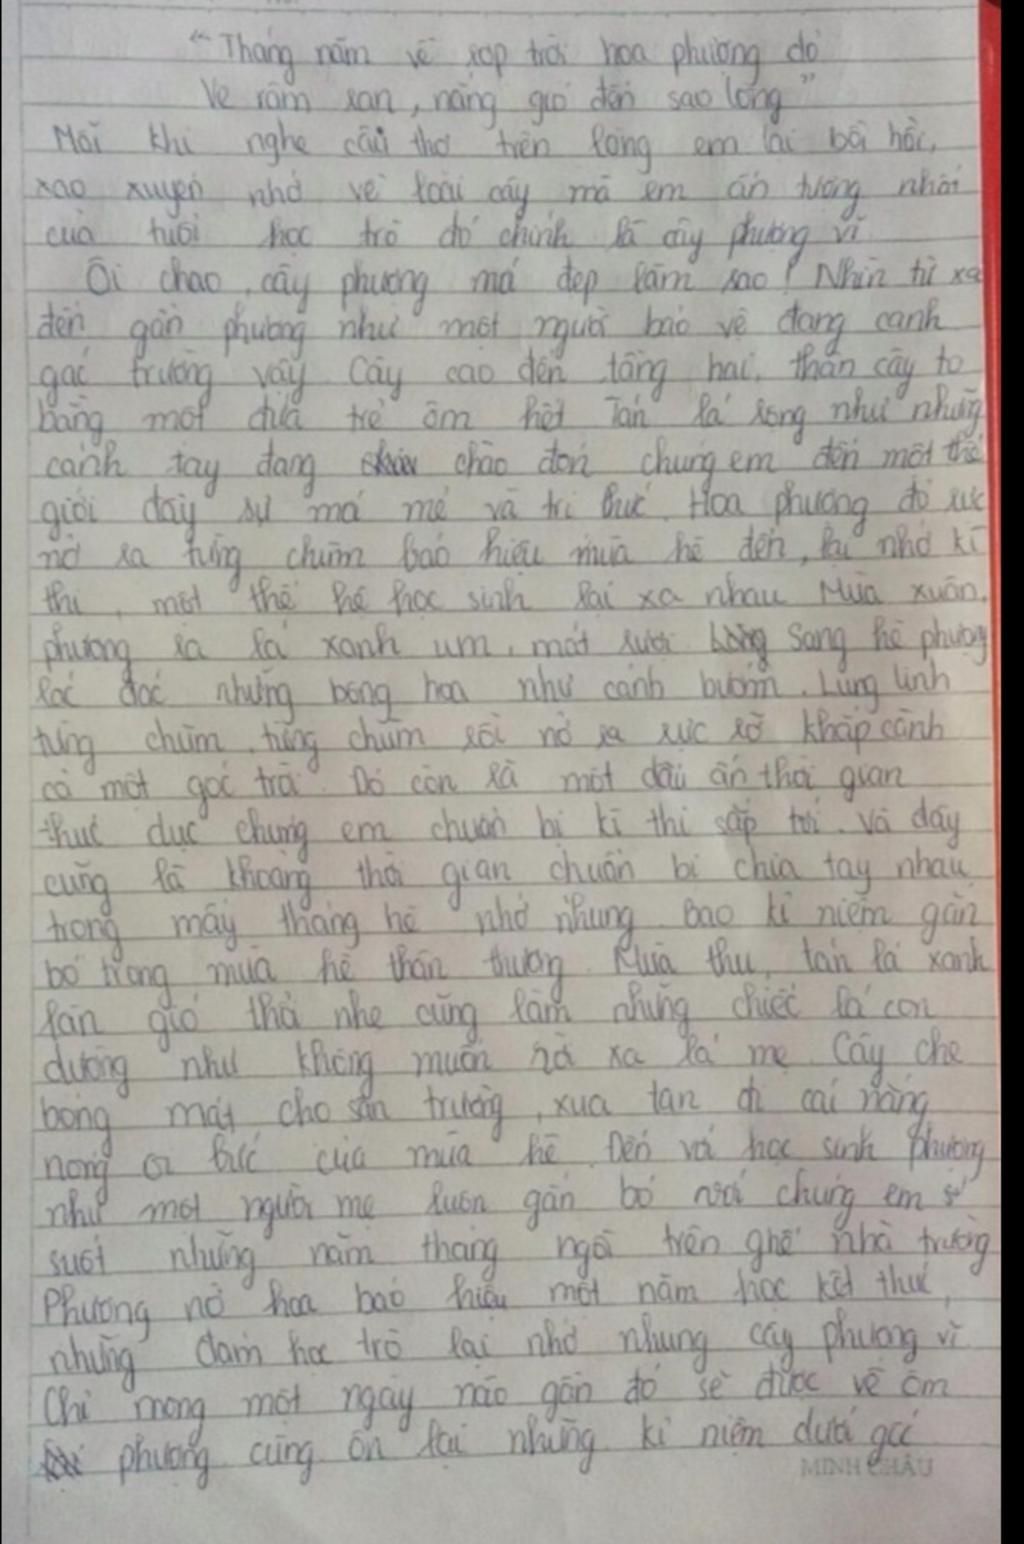 "Tháng năm về rợp trời hoa phượng đỏ
Ve râm ran, nắng gió đến sao lòng"
Mỗi khi nghe câu thơ trên lòng em lại bồi hồi,
xao xuyến nhớ về loài cây mà em ấn tượng nhất
của tuổi học trò đó chính là cây phượng vĩ
Ôi chao, cây phượng mới đẹp làm sao! Nhìn từ xa
đến gần phượng như một người bảo vệ đang canh
gác trường vậy. Cây cao đến tầng hai, thân cây to
bằng một đứa trẻ ôm hết Tán lá rộng như những
cánh tay đang chào đón chúng em đến một thế
giới đầy sự mới mẻ và tri thức. Hoa phượng đỏ rực
nở ra từng chùm báo hiệu mùa hè đến, lại nhớ kì
thi, một thế hệ học sinh lại xa nhau Mùa xuân,
phượng ra lá xanh um, mát rượi Sang hè phượng
lác đác những bông hoa như cánh bướm. Lung linh
từng chùm, từng chùm rồi nở ra rực rỡ khắp cành
cả một góc trời. Đó còn là một dấu ấn thời gian
thúc dục chúng em chuẩn bị kì thi sắp tới. Và đây
cũng là khoảng thời gian chuẩn bị chia tay nhau
trong mấy tháng hè nhớ nhung bao kỉ niệm gắn
bó trong mùa hè thân thương. Mùa thu, tán lá xanh
lần gió thổi nhẹ cũng làm những chiếc lá con
dường như không muốn rời xa lá mẹ. Cây che
bóng mát cho sân trường, xua tan đi cái nắng
nóng oi bức của mùa hè. Đến với học sinh phượng
như một người mẹ luôn gắn bó với chúng em
suốt những năm tháng ngồi trên ghế nhà trường
Phượng nở hoa báo hiệu một năm học kết thúc,
những đám học trò lại nhớ nhung cây phượng vĩ.
Chỉ mong một ngày nào gần đó sẽ được về ôm
phượng cùng ôn lại những kỉ niệm dưới gốc
MINH CHÂU